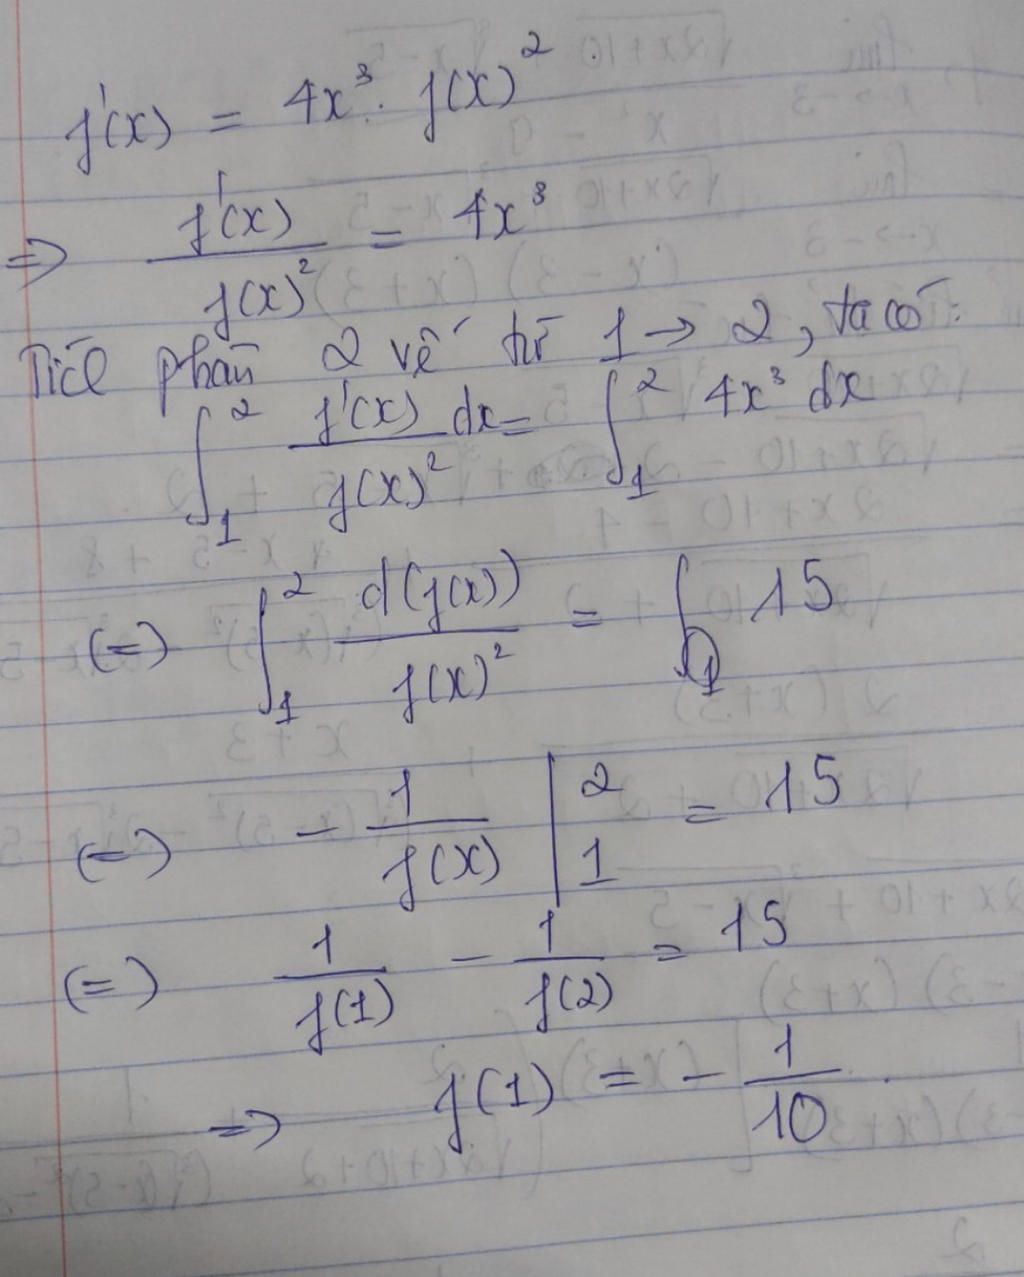 f'(x) = 4x³. f(x)²
=> f'(x) / f(x)² = 4x³
Tích phân 2 vế từ 1 → 2, ta có:
∫₁² f'(x) / f(x)² dx = ∫₁² 4x³ dx
(=) ∫₁² d(f(x)) / f(x)² = ∫₁ 15
(=) - 1 / f(x) |₁² = 15
(=) 1 / f(1) - 1 / f(2) = 15
=> f(1) = - 1 / 10.